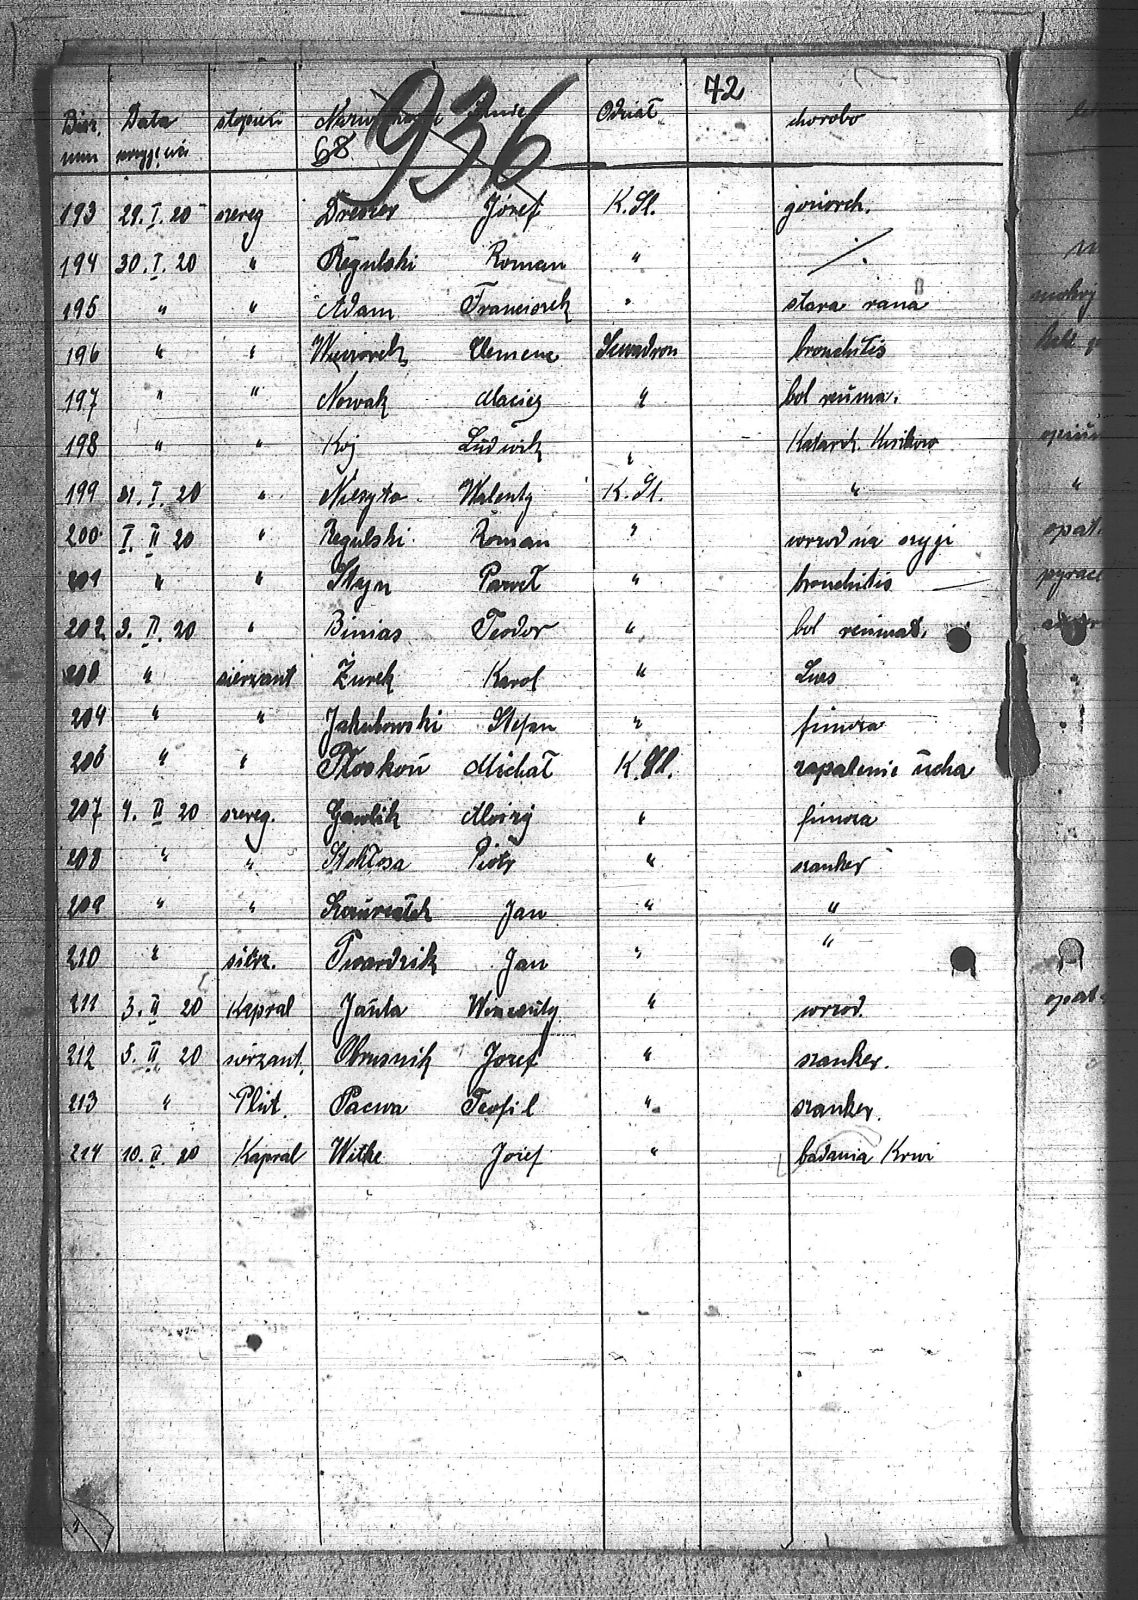 936
72
Data stopień Imię Odział choroba
68
193 29. I. 20 szereg Drewer Józef K. Sl. goniorch.
194 30. I. 20 " Regulski Roman " /.
195 " " Adam Franciszek " stara rana
196 " " Clemens Scwadron bronchitis
197 " " Nowak Maciej " bol reuma.
198 " " Koj Ludwik "
199 31. I. 20 " Walenty K. Sl. "
200 I. II 20 " Regulski Roman " wrzod na szyji
201 " " Paweł " bronchitis
202 3. II. 20 " Binias Teodor " bol reumat.
" sierzant Żurek Karol " Lues
204 " " Jakubowski Stefan " fimoza
206 " " Ploskoń Michał K. Sl. zapalenie ucha
207 4. II 20 szereg. Gawlik Alojzy " fimoza
208 " " Stokłosa Piotr " szanker
209 " " Jan " "
210 " sierz. Twardzik Jan " "
211 3. II 20 Kapral Janta Wincenty " wrzod.
212 5. II 20 sierzant. Obrusnik Jozef " szanker.
213 " Plut. Pacwa Teofil " szanker.
214 10. II. 20 Kapral Witke Jozef " badania Krwi